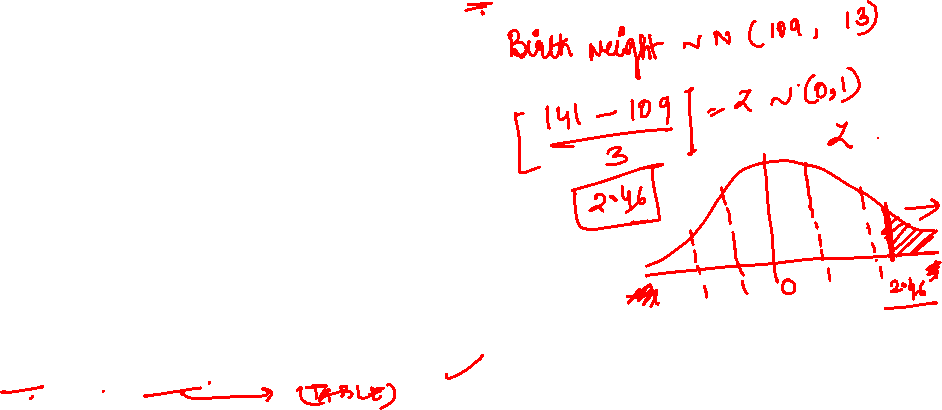 Birth weight ~ N (109, 13)
[ 141 - 109 / 3 ] = Z ~ (0,1)
2.46
Z
0
2.46
(TABLE)